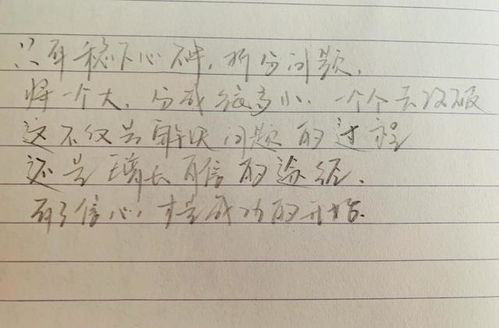 只有稳下心神,拆分问题,
将一个大,分成很多小,一个个去攻破
这不仅是解决问题的过程
还是增长自信的途径、
有了信心,才是成功的开始.